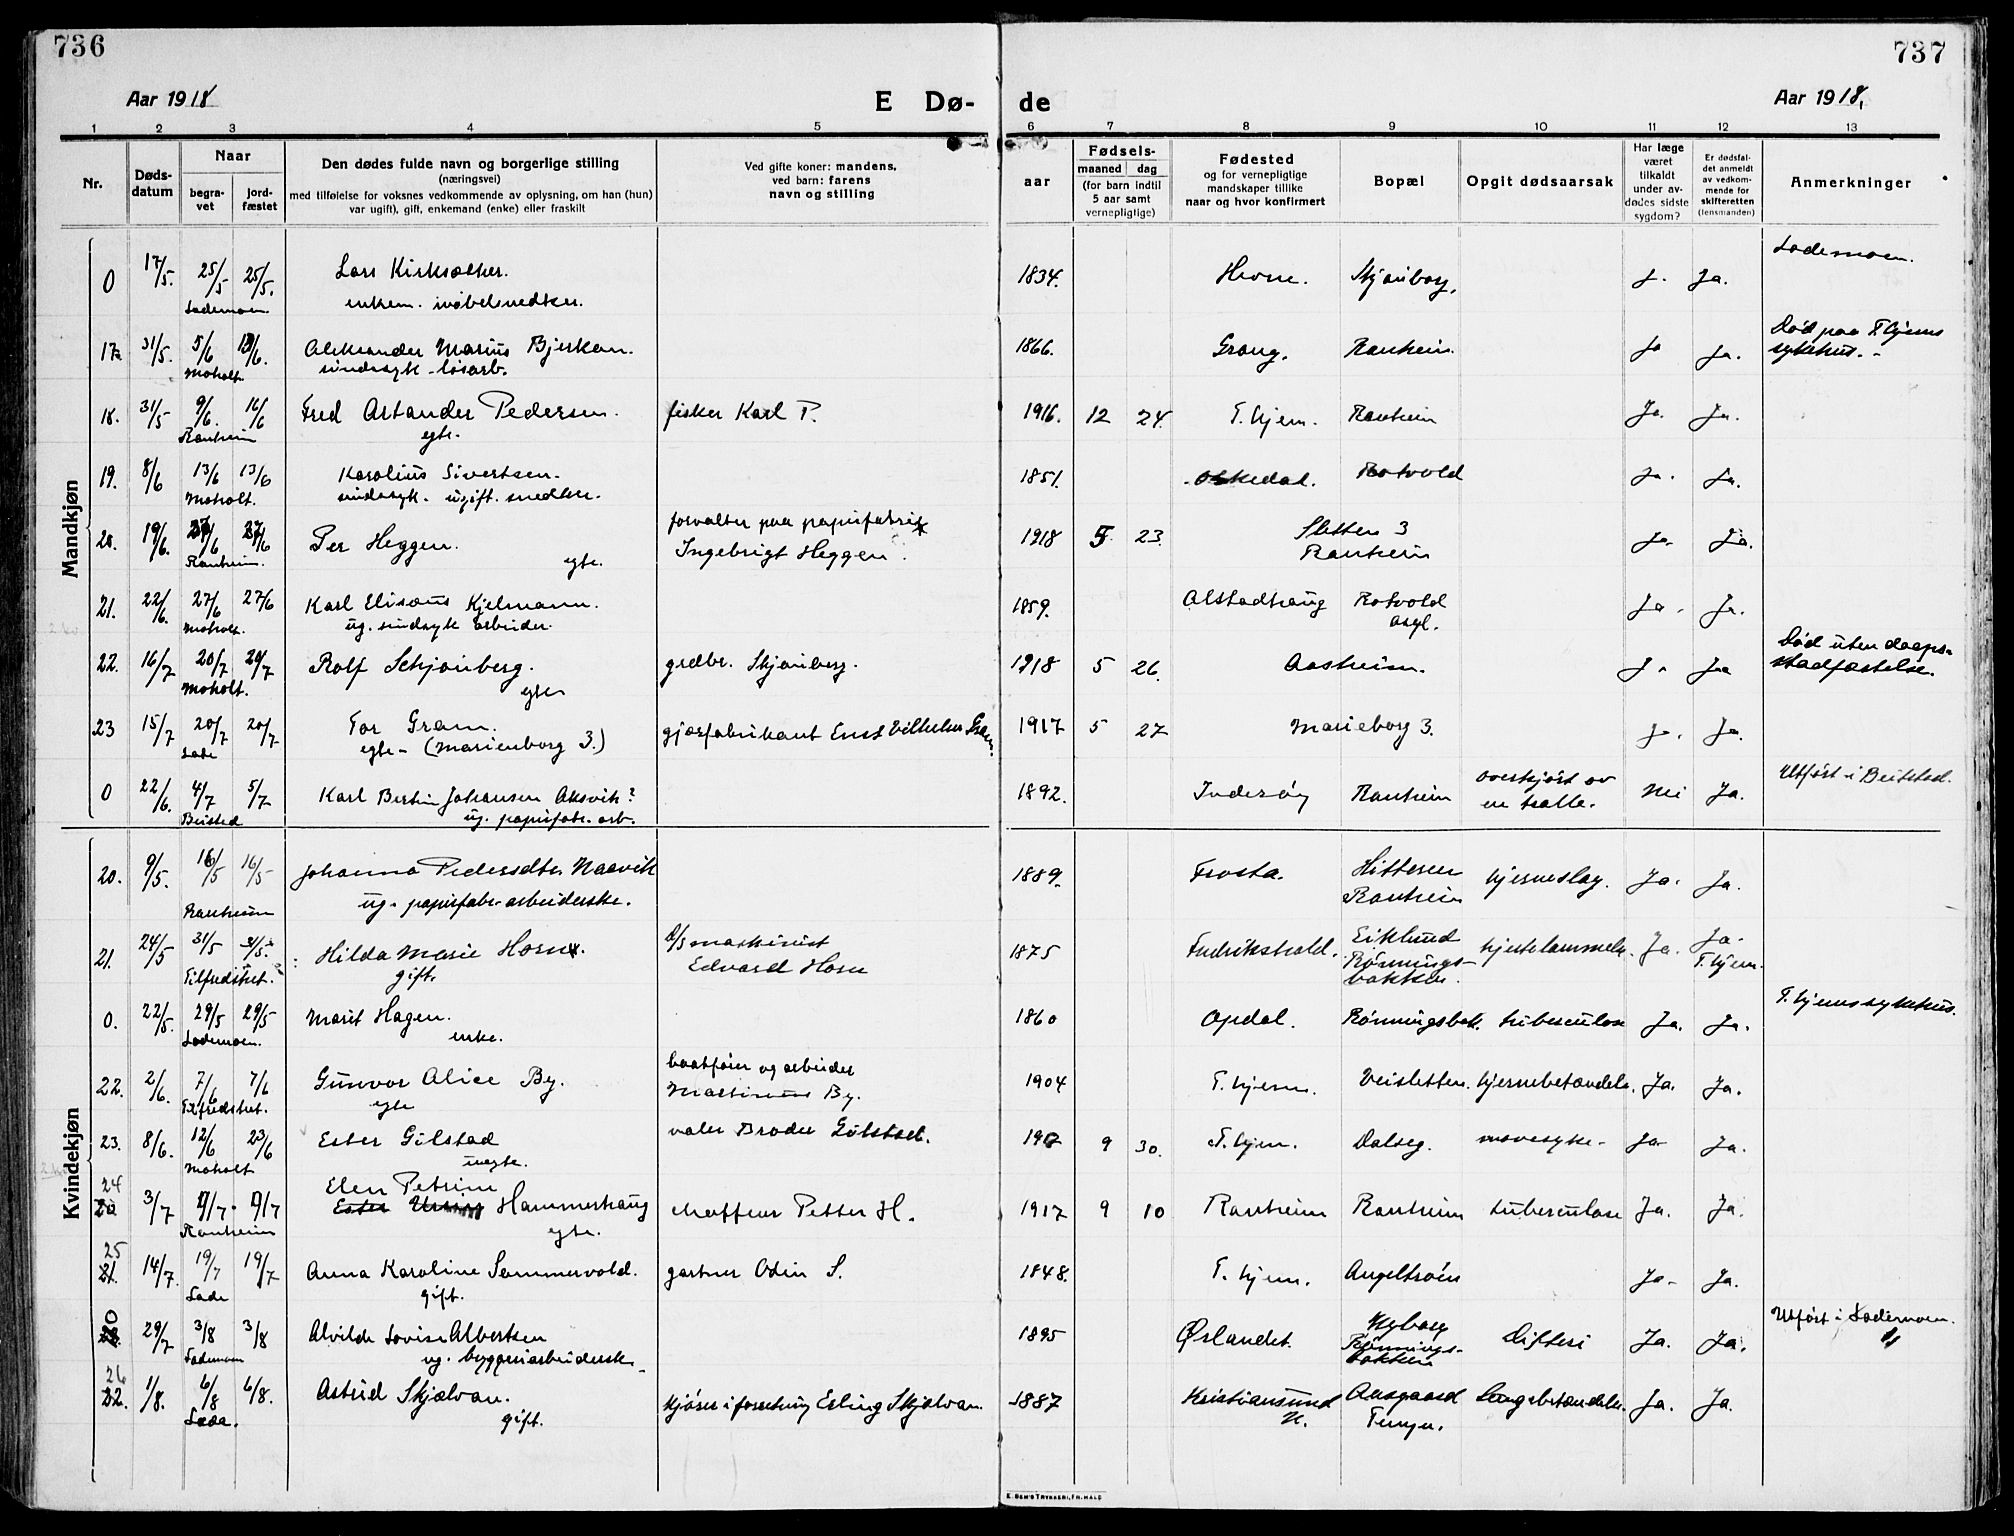 736
737
Aar 1918
E Dø-
de
Aar 1918,
1 2 3 4 5 6 7 8 9 10 11 12 13
Nr.
Døds-
datum
Naar
begra-
vet
jord-
fæstet
Den dødes fulde navn og borgerlige stilling
(næringsvei)
med tilføielse for voksnes vedkommende av oplysning, om han (hun)
var ugift), gift, enkemand (enke) eller fraskilt
Ved gifte koner: mandens,
ved barn: farens
navn og stilling
Fødsels-
aar
maaned dag
(for barn indtil
5 aar samt
vernepligtige)
Fødested
og for vernepligtige
mandskaper tillike
naar og hvor konfirmert
Bopæl
Opgit dødsaarsak
Har læge
været
tilkaldt
under av-
dødes sidste
sygdom?
Er dødsfal-
det anmeldt
av vedkom-
mende for
skifteretten
(lensmanden)
Anmerkninger
Mandkjøn
Lademoen.
0 17/5. 25/5 25/5. Lars Kirksæther. 1834. Hevne. Skjønborg. J. Ja.
Lademoen. enkem. møbelsnedker.
Død paa T.hjems
17. 31/5. 5/6 13/6. Aleksander Marius Bjerkan. 1866. Grong. Ranheim. Ja Ja. sykehus.-
Moholt. sindssyk løsarb.
18. 31/5 9/6. 16/6 Fred Astander Pedersen. fisker Karl P. 1916. 12 24. T.hjem. Ranheim Ja. Ja.
Ranheim egte.
19. 8/6 13/6 13/6 Karolius Sivertsen. 1851. Rotvold Ja. Ja.
Moholt. sindssyk. ugift. snedker.
forvalter paa papirfabrik
20. 19/6. 27/6 27/6 Per Heggen. Ingebrigt Heggen. 1918 5. 23. Sletten 3 Ja. Ja.
Ranheim. egte. Ranheim
21. 22/6. 27/6 27/6 Karl Elisæus Kjelmann. 1859. Alstadhaug Rotvold Ja. Ja.
Moholt. ug. sindssyk arbeider. asyl.
Død uten daaps-
22. 16/7 20/7 20/7 Rolf Schjønberg. grdbr. Skjønberg. 1918 5 26. Aasheim. Ja Ja stadfæstelse.
Moholt. egte
23 15/7 20/7 20/7 Tor Gram. gjærfabrikant Ernst Vilhelm Gram. 1917 5 27 Marieborg 3. Ja. Ja.
Lade egte- (Marienborg 3.)
0 22/6. 4/7 5/7 Karl Bertin Johansen Aksvik? 1892. Inderøy Ranheim overkjørt av Nei Ja. Utført i Beitstad.
Beisted ug. papirfabr. arb. en tralle.
Kvindekjøn
20. 9/5. 16/5 16/5 Johanna Pedersdtr Naavik 1889. Frosta. Hitteren hjerneslag. Ja. Ja.
Ranheim ug. papirfabr. arbeiderske. Ranheim
21. 24/5 31/5 31/5. Hilda Marie Horn. maskinist 1875 Fredrikshald. Eiklund hjertelammelse. Ja. Ja.
Tilfredshet. gift. Edvard Horn Rønnings- T.hjem.
bakken.
0. 22/5. 29/5 29/5 Marit Hagen. 1860 Opdal. Rønningsbak. tuberculose Ja. Ja. T.hjems sykehus.
Lademoen. enke.
baatfører og arbeider
22. 2/6. 7/6 7/6 Gunvor Alice By. Martinus By. 1904 T.hjem. Veisletten. hjernebetændelse. Ja. Ja.
Tilfredshet. egte
23. 8/6. 12/6 23/6 Ester Gilstad 1907 9 30. T.hjem. Dalseg. mavesyke- Ja Ja.
Moholt uegte.
24 Elen Petrine
20. 3/7 9/7. 9/7 Ester Hammerhaug Petter H. 1917 9 10 Ranheim Ranheim tuberculose Ja. Ja.
Ranheim egte.
25
21. 14/7. 19/7 19/7 Anna Karoline Sommervold. gartner Odin S. 1848. T.hjem. Angeltrøen Ja- Ja.
Lade gift.
0 29/7 3/8 3/8 Alvilde Lovise Albertsen 1895 Ørlandet. Nyborg Difteri Ja. Ja. Utført i Lademoen.
Lademoen ug. byggeriarbeiderske Rønnings-
bakken
26
22. 1/8. 6/8 6/8. Astrid Skjælvan. kjører i forretning Erling Skjælvan. 1887 Kristiansund Aasgaard Lungebetændelse. Ja. Ja.
Lade. gift. N. Tempe.
E. SEM'S TRYKKERI, FR.HALD